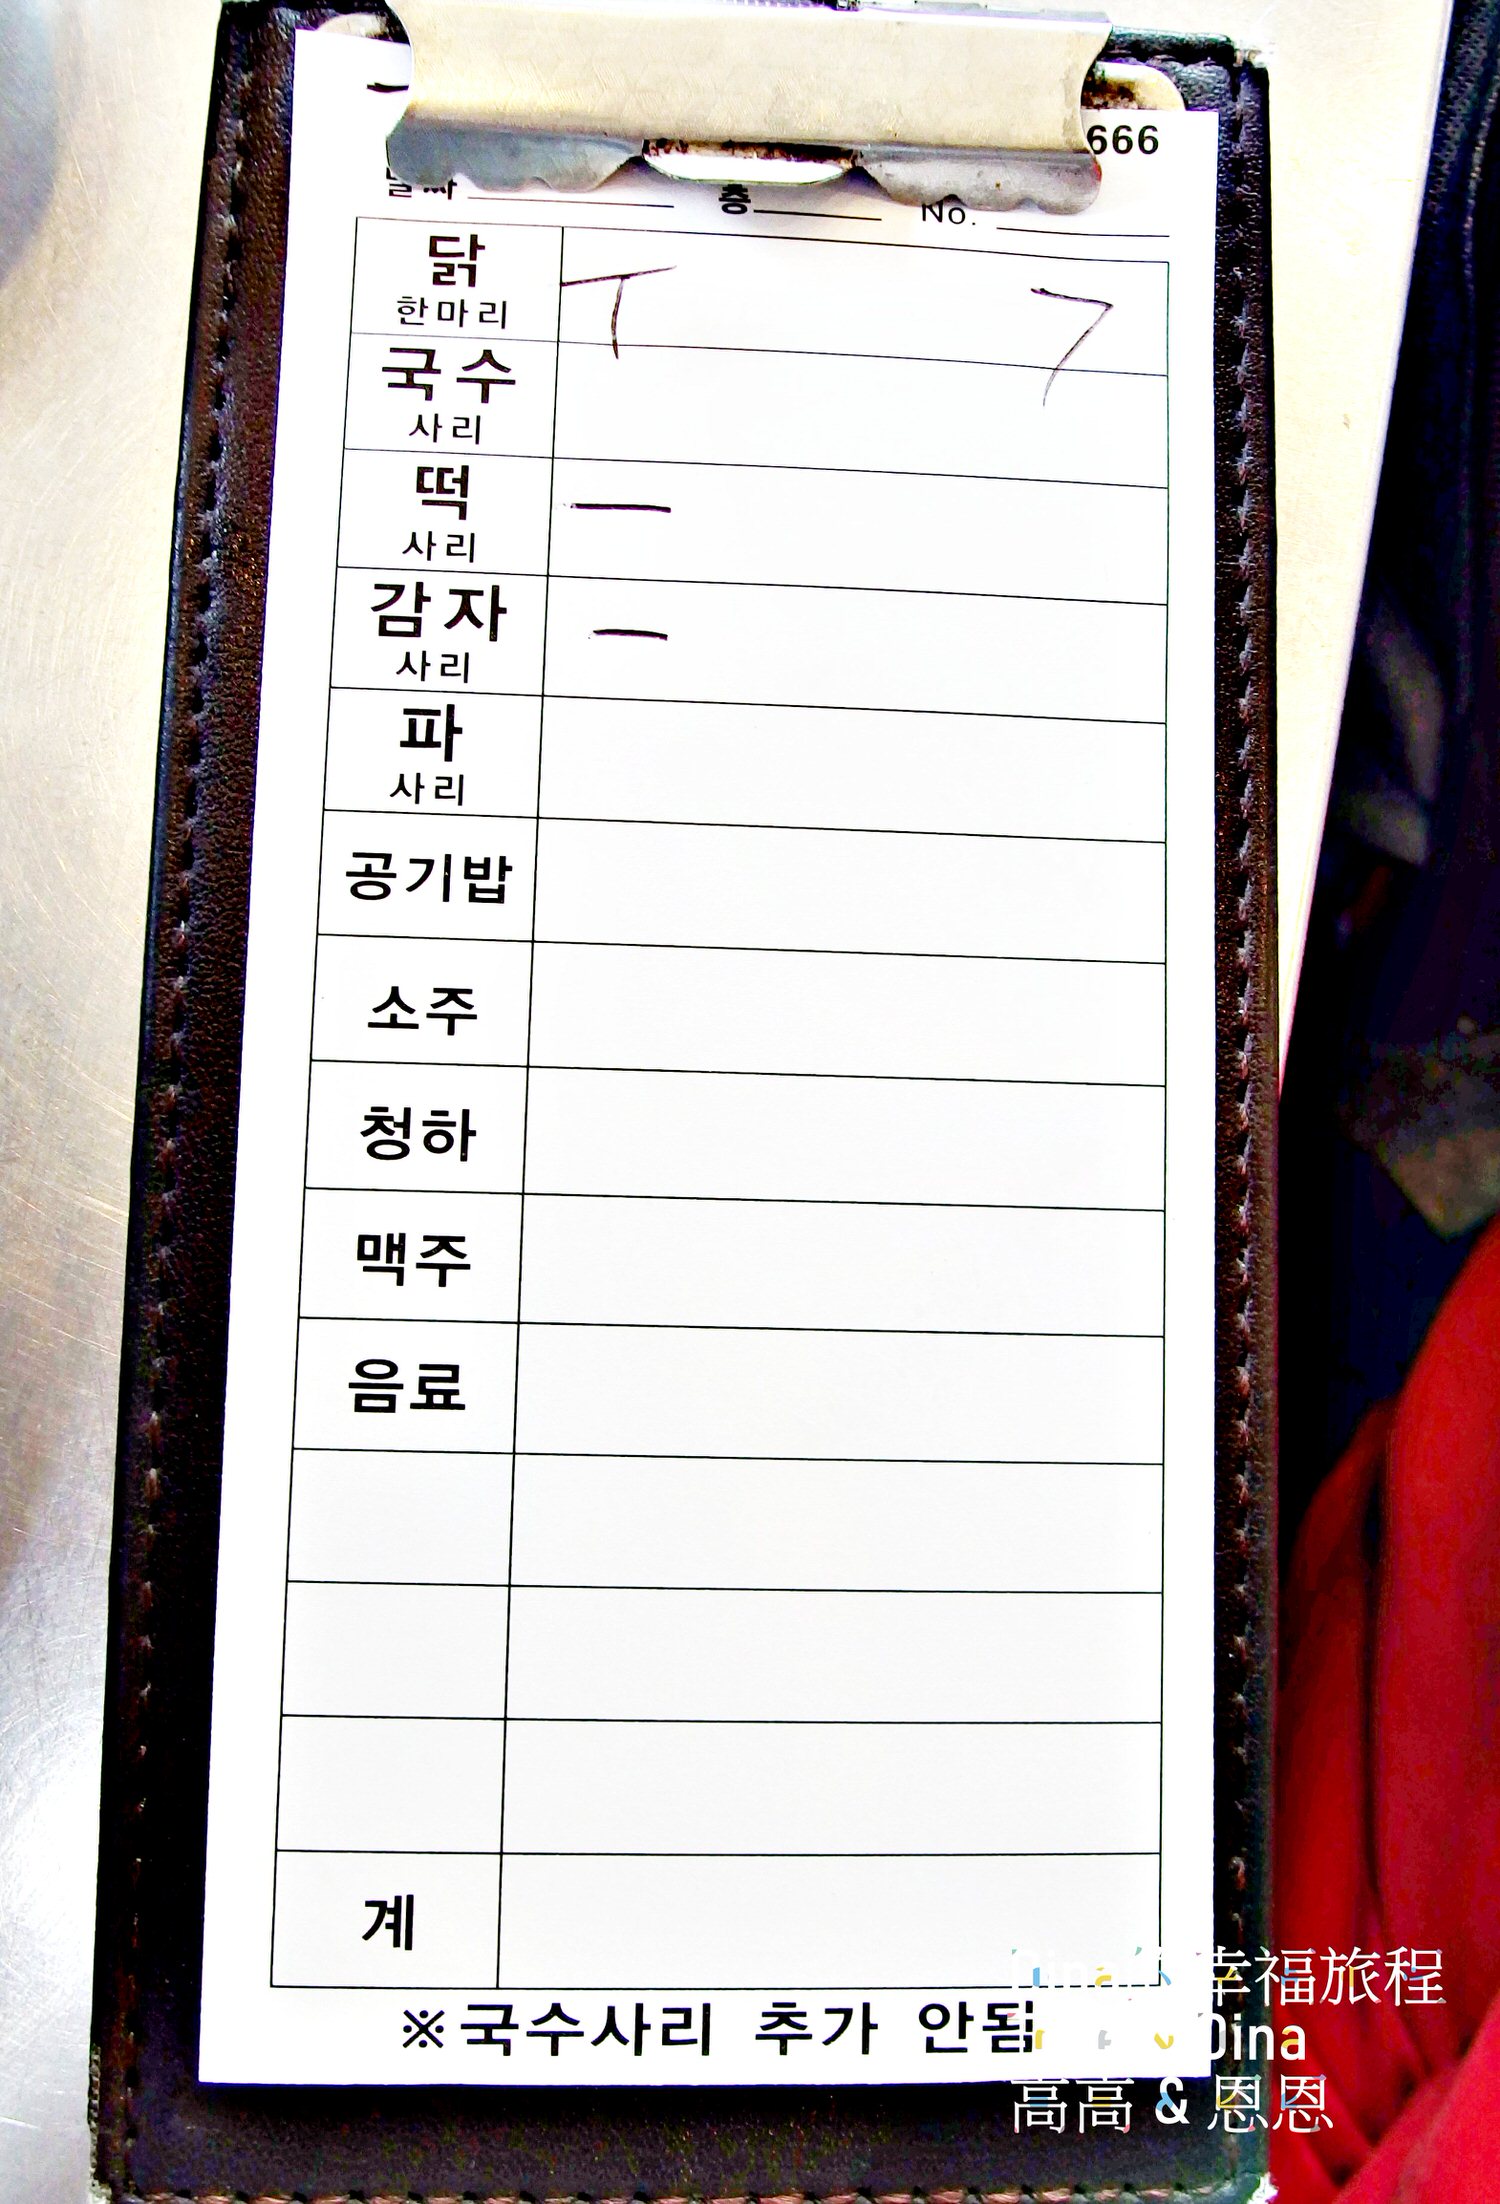 666
날짜 층 No.
닭
한마리
T 7
국수
사리
떡
사리
一
감자
사리
一
파
사리
공기밥
소주
청하
맥주
음료
계
※국수사리 추가 안됨
幸福旅程
Dina
高高 & 恩恩